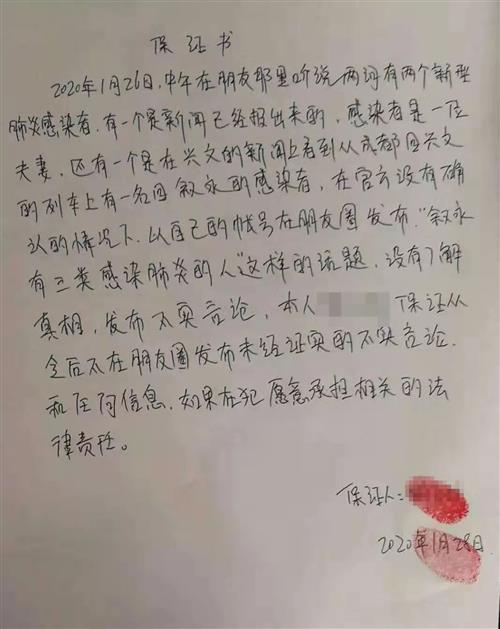 保证书
2020年1月26日,中午在朋友那里听说两河有两个新型
肺炎感染者,有一个是新闻已经报出来的,感染者是一位
夫妻,还有一个是在兴文的新闻上看到从成都回兴文
的列车上有一名回叙永的感染者,在官方没有确
认的情况下,以自己的帐号在朋友圈发布,"叙永
有三类感染肺炎的人"这样的话题,没有了解
真相,发布不实言论,本人 保证从
今后不在朋友圈发布未经证实的不实言论,
和任何信息,如果在犯愿意承担相关的法
律责任。
保证人:
2020年1月28日.